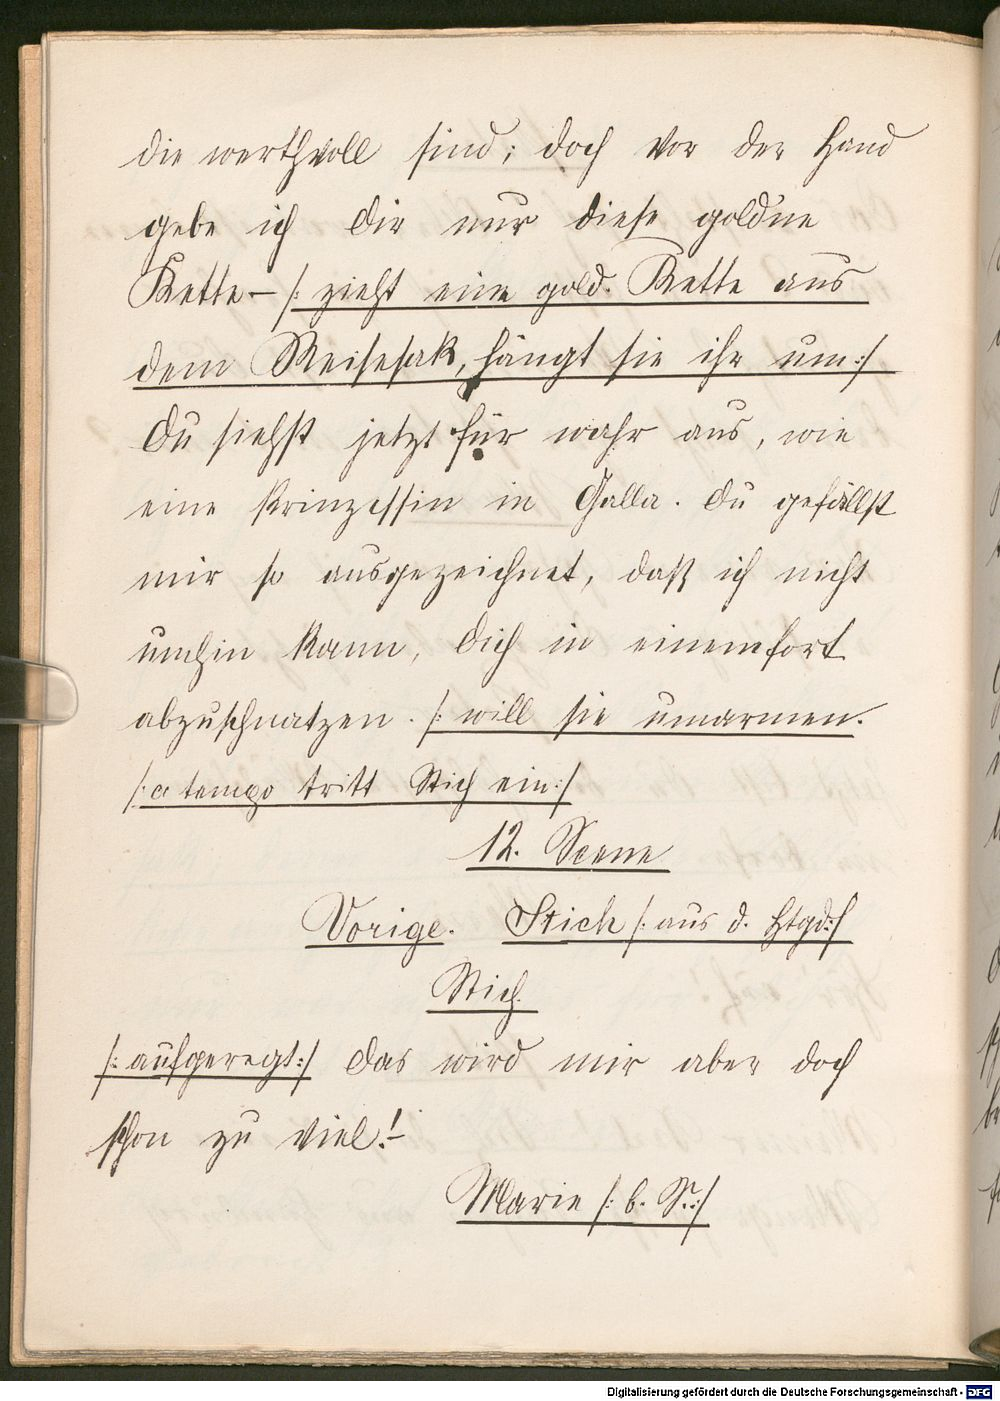 die werthvoll sind; doch vor der Hand
gebe ich Dir nur diese gold'ne
Kette – /: zieht eine gold. Kette aus
dem Reisesak, hängt sie ihr um :/
Du siehst jetzt für wahr aus, wie
eine Prinzessin in Galla. Du gefällst
mir so ausgezeichnet, daß ich nicht
umhin kann, Dich in einemfort
abzuschnatzen. /: will sie umarmen.
/: a tempo tritt Stich ein :/
12. Scene
Vorige. Stich /: aus d. Htgd :/
Stich.
/: aufgeregt :/ Das wird mir aber doch
schon zu viel! –
Marie /: b. S. :/
Digitalisierung gefördert durch die Deutsche Forschungsgemeinschaft - DFG